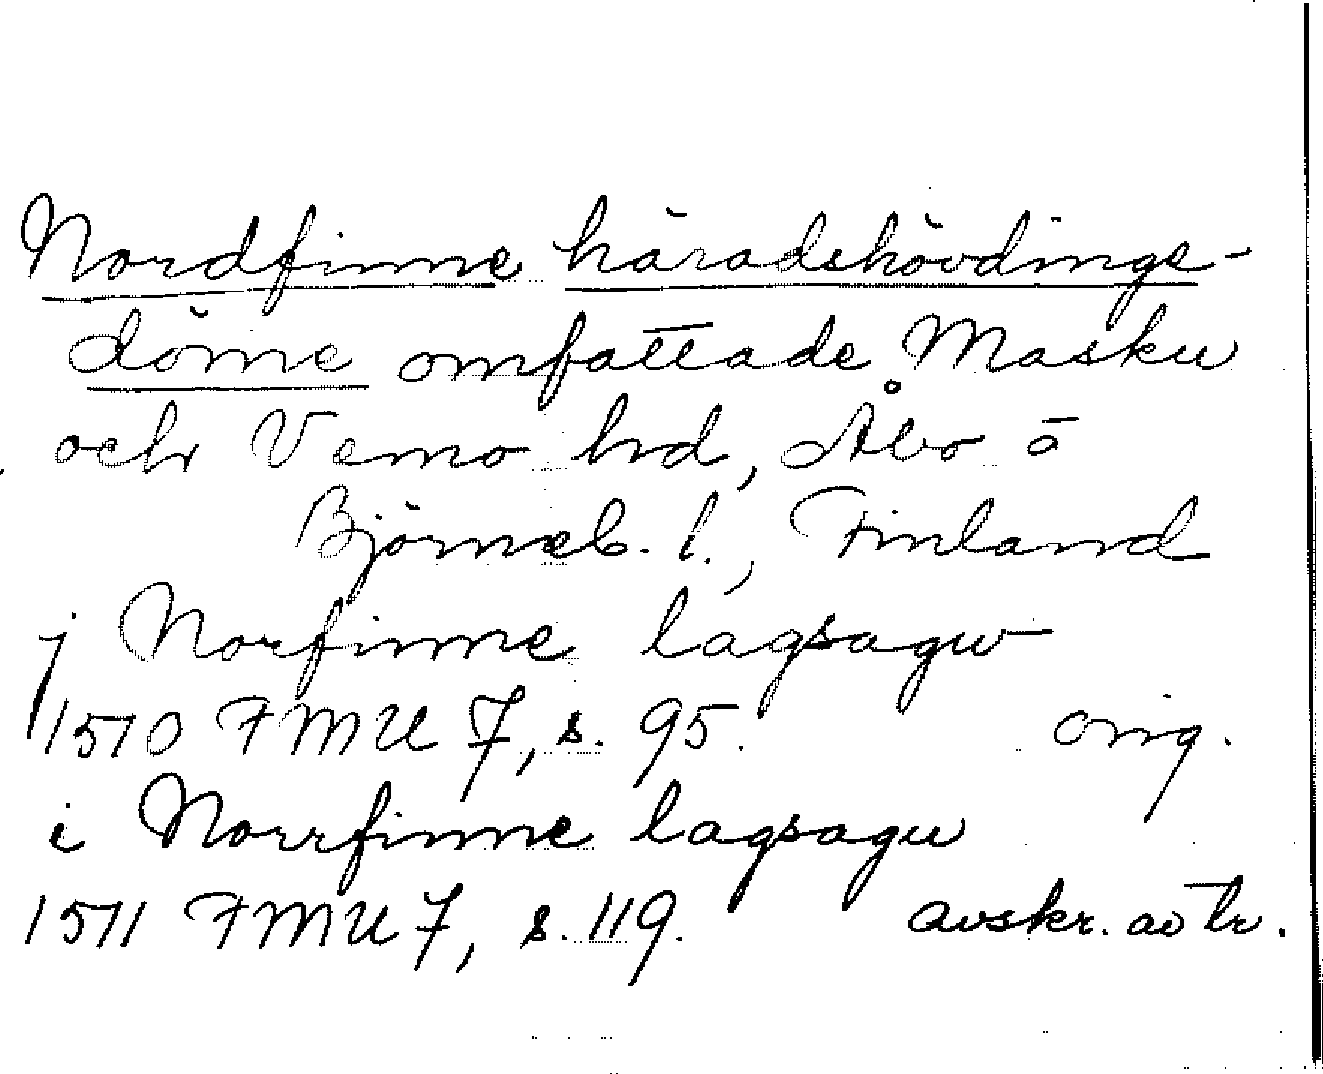 Nordfinne häradshövdinge-
döme omfattade Masku
och Vemo hrd, Åbo o
Björneb. l., Finland
j Norfinne lagsagu
1510 FMU 7, s. 95. orig.
i Norrfinne lagsagu
1511 FMU 7, s. 119. avskr. av tr.